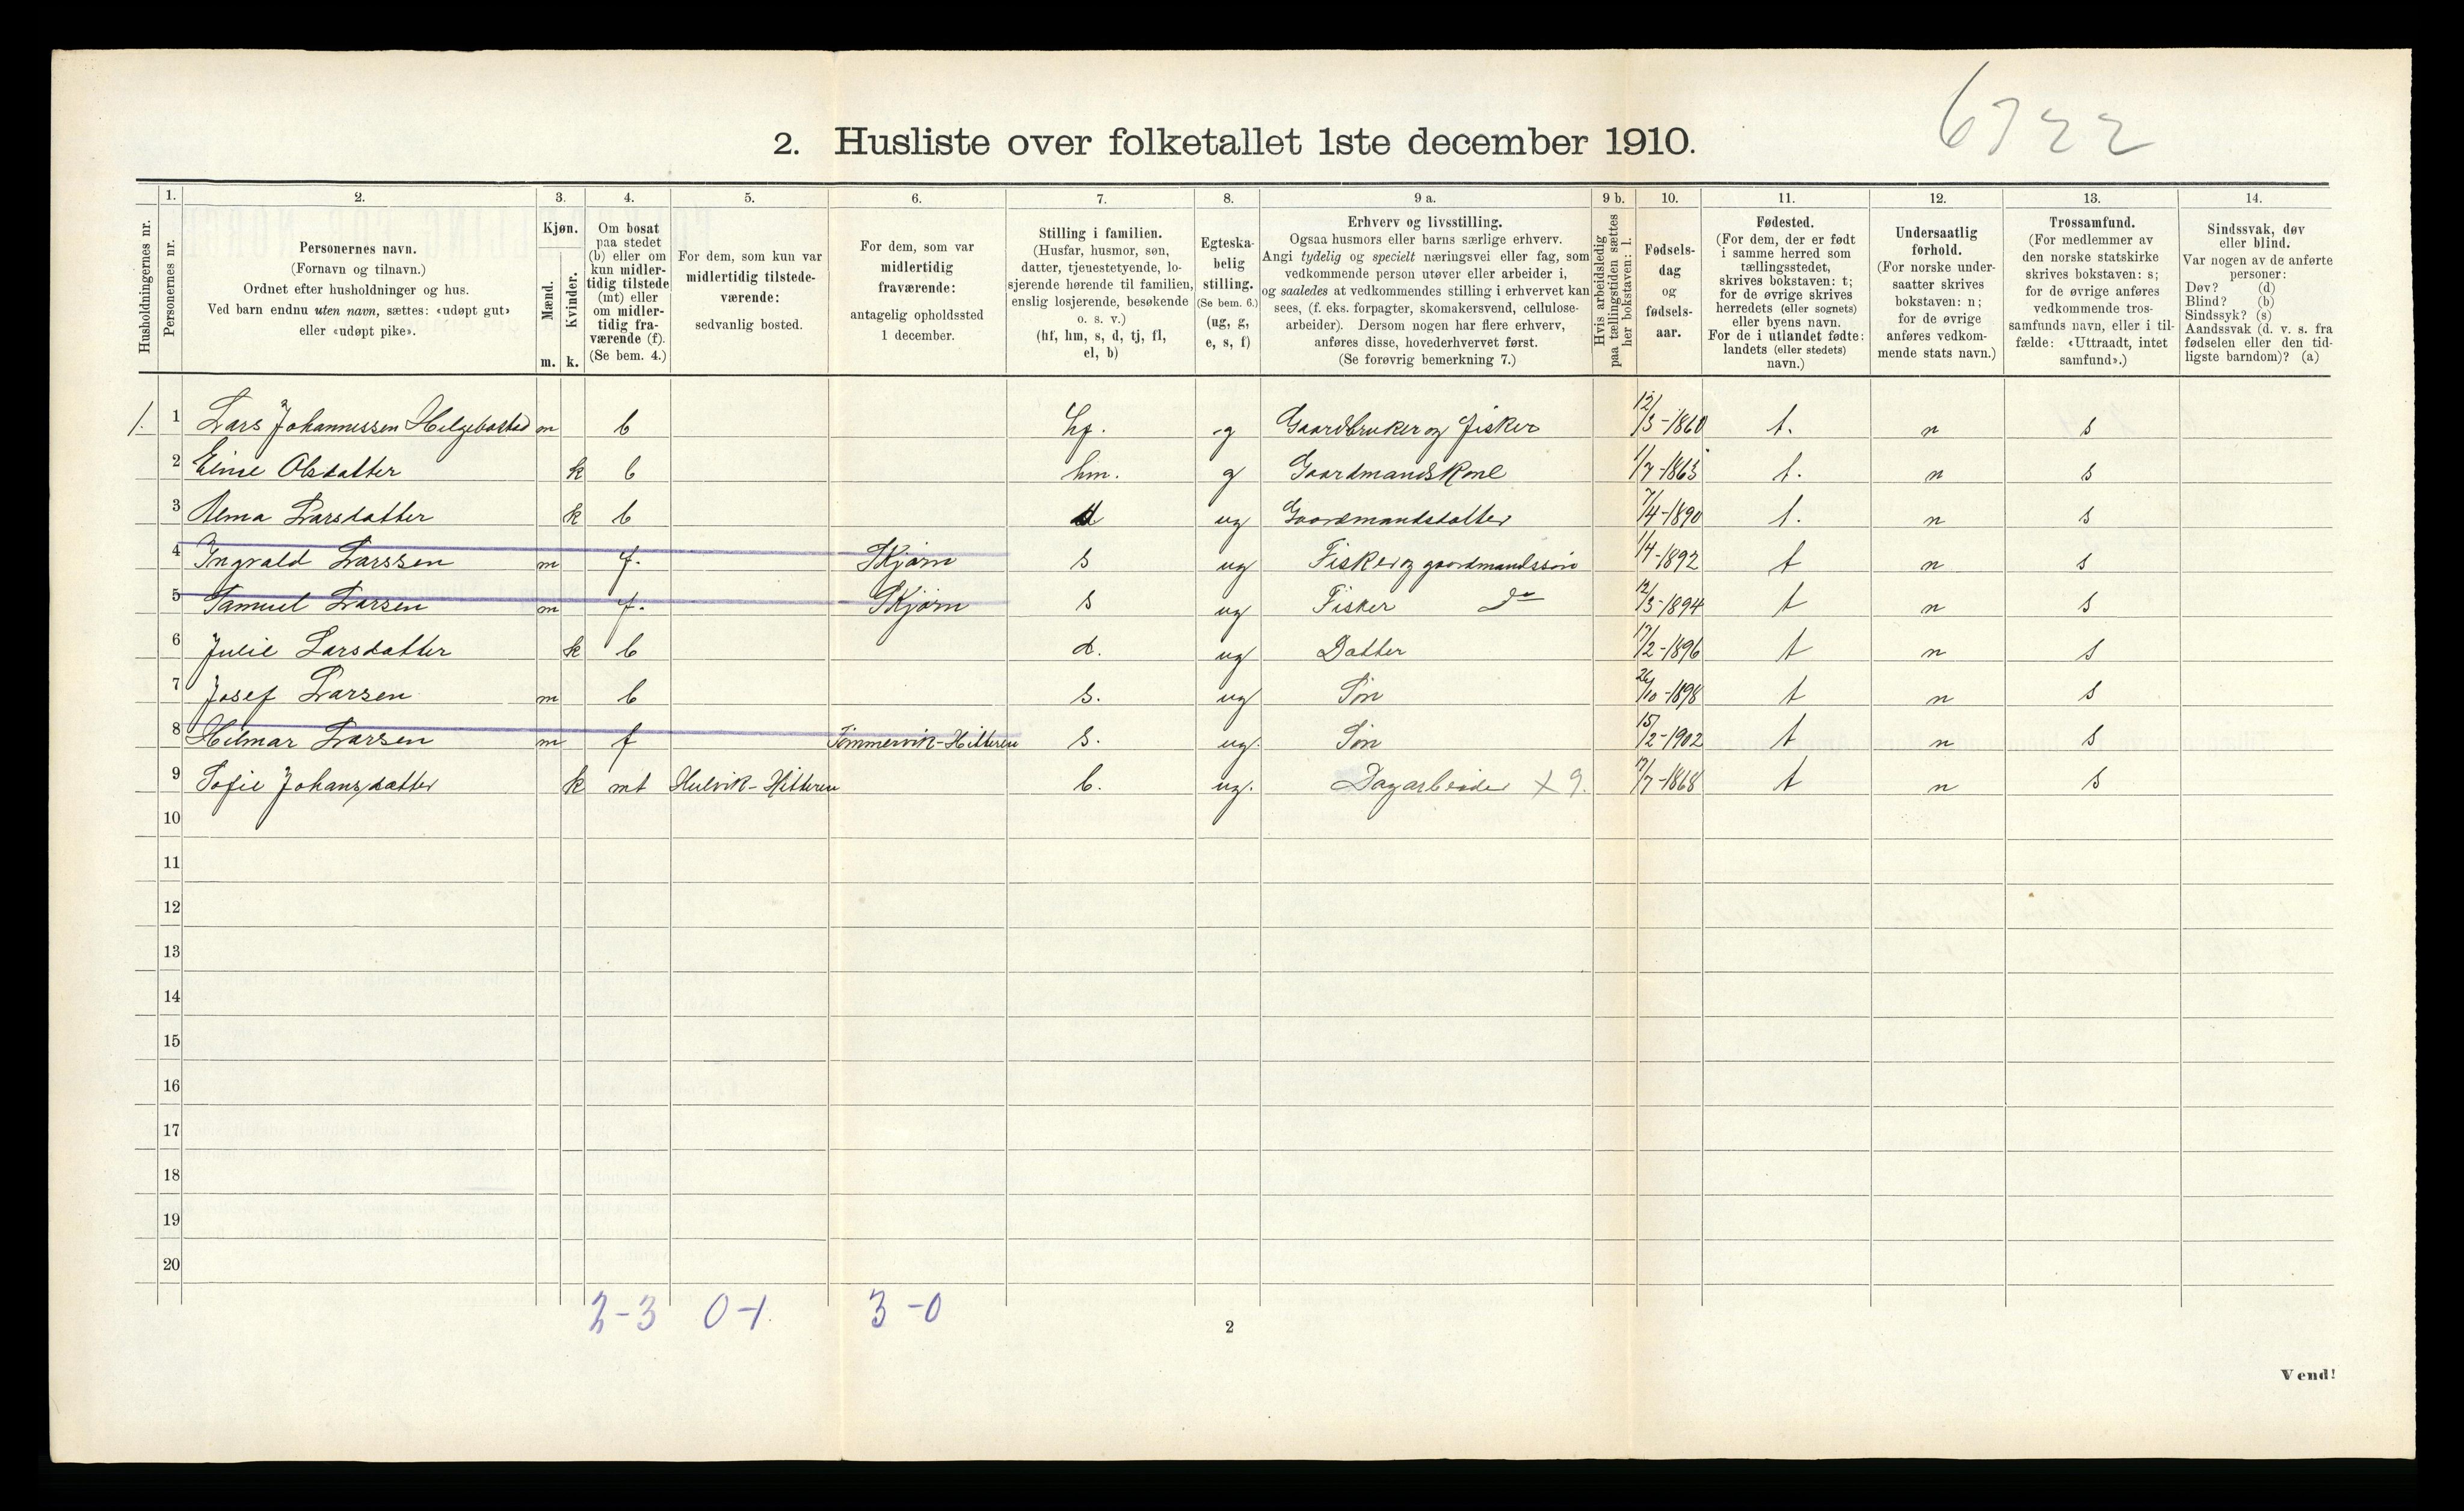 6722
2. Husliste over folketallet 1ste december 1910.
Husholdningernes nr.
1.
Personernes nr.
2.
Personernes navn.
(Fornavn og tilnavn.)
Ordnet efter husholdninger og hus.
Ved barn endnu uten navn, sættes: «udøpt gut»
eller «udøpt pike».
3.
Kjøn.
Mænd.
m.
Kvinder.
k.
4.
Om bosat
paa stedet
(b) eller om
kun midler-
tidig tilstede
(mt) eller
om midler-
tidig fra-
værende (f).
(Se bem. 4.)
5.
For dem, som kun var
midlertidig tilstede-
værende:
sedvanlig bosted.
6.
For dem, som var
midlertidig
fraværende:
antagelig opholdssted
1 december.
7.
Stilling i familien.
(Husfar, husmor, søn,
datter, tjenestetyende, lo-
sjerende hørende til familien,
enslig losjerende, besøkende
o. s. v.)
(hf, hm, s, d, tj, fl,
el, b)
8.
Egteska-
belig
stilling.
(Se bem. 6.)
(ug, g,
e, s, f)
9 a.
Erhverv og livsstilling.
Ogsaa husmors eller barns særlige erhverv.
Angi tydelig og specielt næringsvei eller fag, som
vedkommende person utøver eller arbeider i,
og saaledes at vedkommendes stilling i erhvervet kan
sees, (f. eks. forpagter, skomakersvend, cellulose-
arbeider). Dersom nogen har flere erhverv,
anføres disse, hovederhvervet først.
(Se forøvrig bemerkning 7.)
9 b.
Hvis arbeidsledig
paa tællingstiden sættes
her bokstaven: l.
10.
Fødsels-
dag
og
fødsels-
aar.
11.
Fødested.
(For dem, der er født
i samme herred som
tællingsstedet,
skrives bokstaven: t;
for de øvrige skrives
herredets (eller sognets)
eller byens navn.
For de i utlandet fødte:
landets (eller stedets)
navn.)
12.
Undersaatlig
forhold.
(For norske under-
saatter skrives
bokstaven: n;
for de øvrige
anføres vedkom-
mende stats navn.)
13.
Trossamfund.
(For medlemmer av
den norske statskirke
skrives bokstaven: s;
for de øvrige anføres
vedkommende tros-
samfunds navn, eller i til-
fælde: «Uttraadt, intet
samfund».)
14.
Sindssvak, døv
eller blind.
Var nogen av de anførte
personer:
Døv? (d)
Blind? (b)
Sindssyk? (s)
Aandssvak (d. v. s. fra
fødselen eller den tid-
ligste barndom)? (a)
1. 1 Lars Johannessen Helgebostad m b hf. g Gaardbruker og fisker 12/3-1860 t. n s
2 Eline Olsdatter k b hm. g Gaardmandskone 1/7-1863 t. n s
3 Alma Larsdatter k b d ug Gaardmandsdatter 7/4-1890 t. n s
4 Ingvald Larssen m f. Skjørn s ug Fisker og gaardmandssøn 1/4-1892 t n s
5 Samuel Larsen m f. Skjørn s ug Fisker Do 12/3-1894 t n s
6 Julie Larsdatter k b d. ug Datter 17/2-1896 t n s
7 Josef Larsen m b s. ug Søn 26/10-1898 t n s
8 Hilmar Larsen m f Tømmervik-Hitteren s. ug. Søn 15/2-1902 t n s
9 Sofie Johansdatter k mt Hulvik-Hitteren b. ug. Dagarbeider x 9. 7/7-1868 t n s
10
11
12
13
14
15
16
17
18
19
20
2-3 0-1. 3-0
2
Vend!